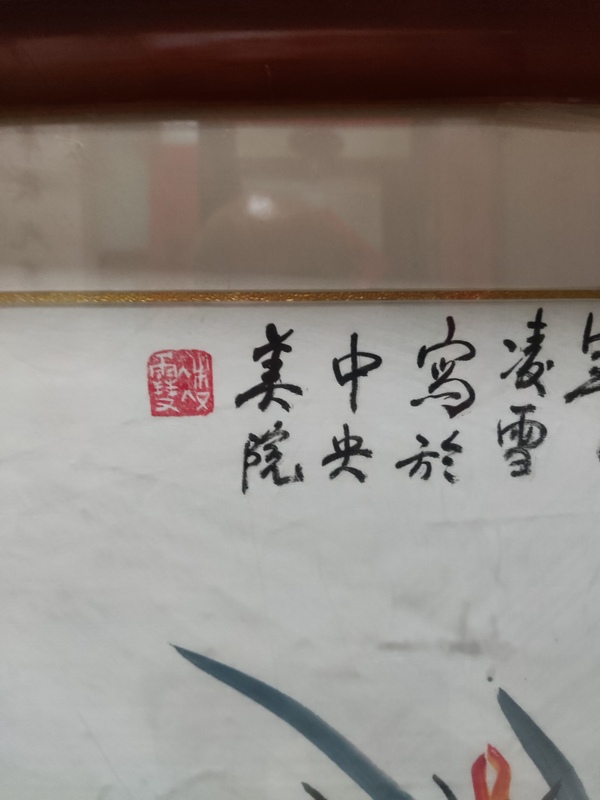 凌雪
寫於
中央
美院